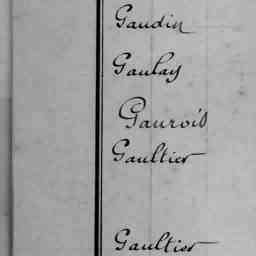 Gaudin
Gaulay
Gaurois
Gaultier
Gaultier